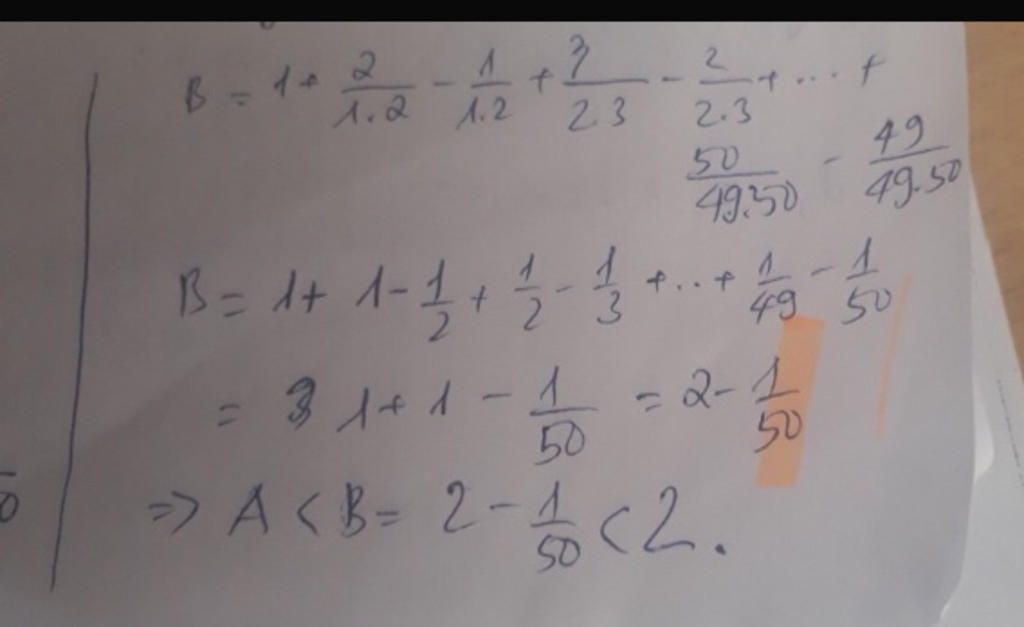 B = 1 + 2/1.2 - 1/1.2 + 3/2.3 - 2/2.3 + ... +
50/49.50 - 49/49.50
B = 1 + 1 - 1/2 + 1/2 - 1/3 + ... + 1/49 - 1/50
= 1 + 1 - 1/50 = 2 - 1/50
=> A < B = 2 - 1/50 < 2.